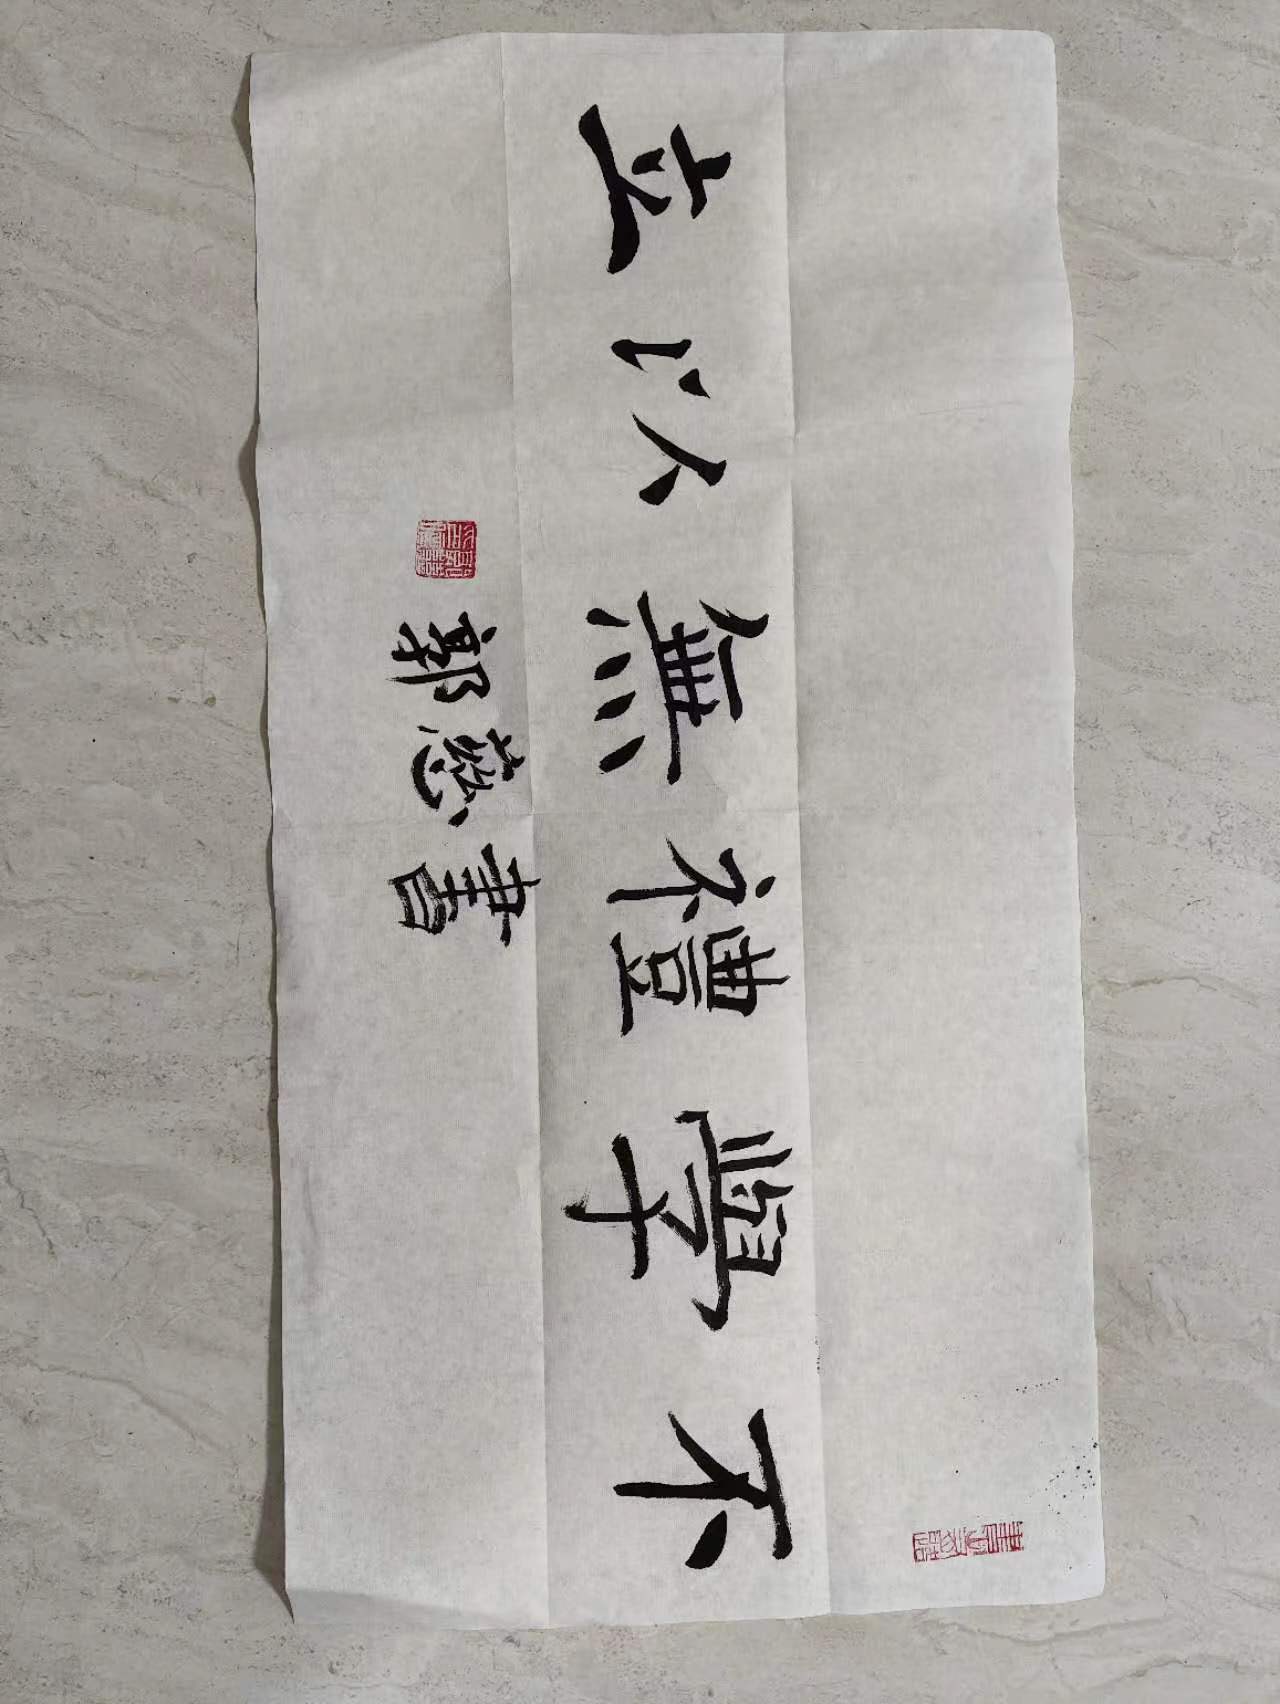 不學禮無以立
郭慈書